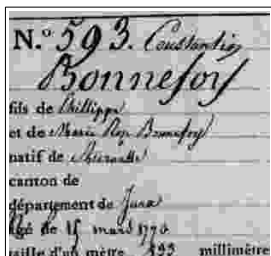 N.° 593. Constantin
Bonnefoy
fils de Philippe
et de Marie Rose Bonnefoy
natif de
canton de
département de Jura
âgé de 15 mars 1770
taille d'un mètre millimètre